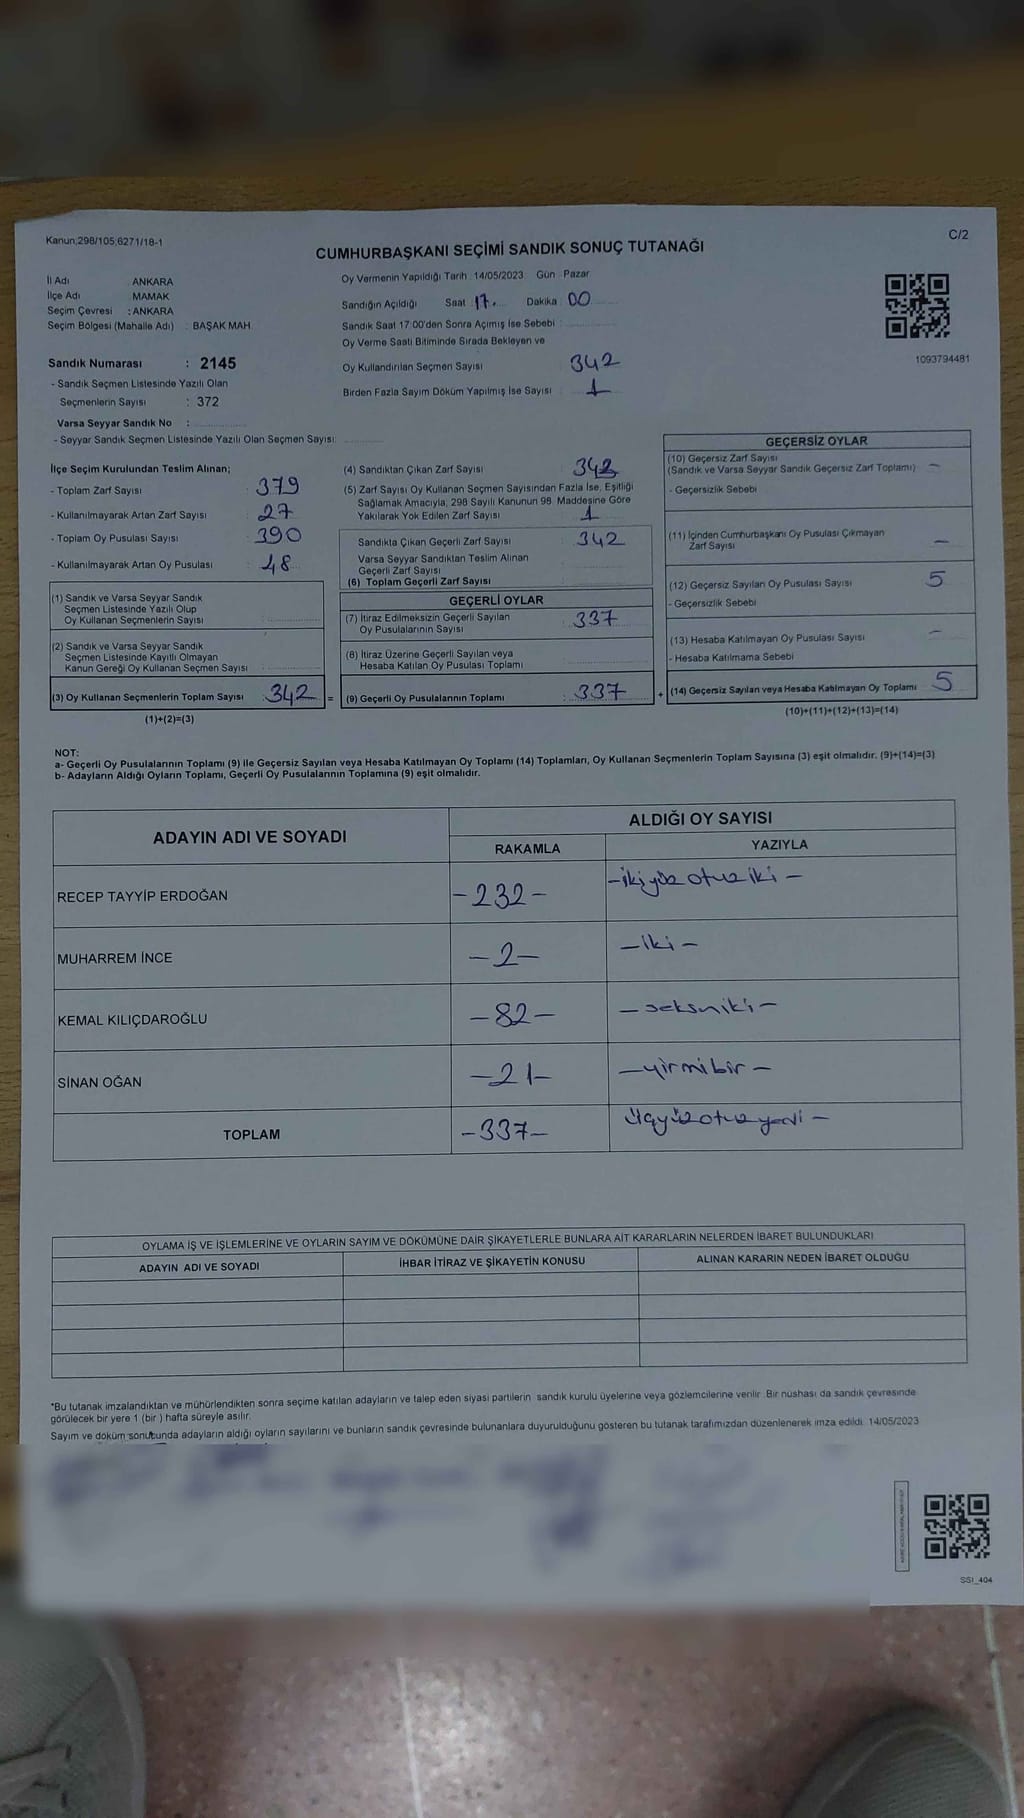 Kanun;298/105;6271/18-1
C/2
CUMHURBAŞKANI SEÇİMİ SANDIK SONUÇ TUTANAĞI
İl Adı : ANKARA
İlçe Adı : MAMAK
Seçim Çevresi : ANKARA
Seçim Bölgesi (Mahalle Adı) : BAŞAK MAH.
Oy Vermenin Yapıldığı Tarih : 14/05/2023 Gün : Pazar
Sandığın Açıldığı Saat : 17. Dakika : 00
Sandık Saat 17:00'den Sonra Açımış İse Sebebi :
Oy Verme Saati Bitiminde Sırada Bekleyen ve
Oy Kullandırılan Seçmen Sayısı 342
Birden Fazla Sayım Döküm Yapılmış İse Sayısı 1
1093794481
Sandık Numarası : 2145
- Sandık Seçmen Listesinde Yazılı Olan
Seçmenlerin Sayısı : 372
Varsa Seyyar Sandık No :
- Seyyar Sandık Seçmen Listesinde Yazılı Olan Seçmen Sayısı:
İlçe Seçim Kurulundan Teslim Alınan;
- Toplam Zarf Sayısı : 379
- Kullanılmayarak Artan Zarf Sayısı : 27
- Toplam Oy Pusulası Sayısı : 390
- Kullanılmayarak Artan Oy Pusulası : 48
(1) Sandık ve Varsa Seyyar Sandık
Seçmen Listesinde Yazılı Olup
Oy Kullanan Seçmenlerin Sayısı :
(2) Sandık ve Varsa Seyyar Sandık
Seçmen Listesinde Kayıtlı Olmayan
Kanun Gereği Oy Kullanan Seçmen Sayısı :
(3) Oy Kullanan Seçmenlerin Toplam Sayısı : 342 =
(1)+(2)=(3)
(4) Sandıktan Çıkan Zarf Sayısı : 343
(5) Zarf Sayısı Oy Kullanan Seçmen Sayısından Fazla İse, Eşitliği
Sağlamak Amacıyla, 298 Sayılı Kanunun 98. Maddesine Göre
Yakılarak Yok Edilen Zarf Sayısı : 1
Sandıkta Çıkan Geçerli Zarf Sayısı : 342
Varsa Seyyar Sandıktan Teslim Alınan
Geçerli Zarf Sayısı :
(6) Toplam Geçerli Zarf Sayısı :
GEÇERLİ OYLAR
(7) İtiraz Edilmeksizin Geçerli Sayılan
Oy Pusulalarının Sayısı : 337
(8) İtiraz Üzerine Geçerli Sayılan veya
Hesaba Katılan Oy Pusulası Toplamı :
(9) Geçerli Oy Pusulalarının Toplamı : 337 +
GEÇERSİZ OYLAR
(10) Geçersiz Zarf Sayısı
(Sandık ve Varsa Seyyar Sandık Geçersiz Zarf Toplamı) -
- Geçersizlik Sebebi
(11) İçinden Cumhurbaşkanı Oy Pusulası Çıkmayan
Zarf Sayısı -
(12) Geçersiz Sayılan Oy Pusulası Sayısı 5
- Geçersizlik Sebebi
(13) Hesaba Katılmayan Oy Pusulası Sayısı -
- Hesaba Katılmama Sebebi
(14) Geçersiz Sayılan veya Hesaba Katılmayan Oy Toplamı 5
(10)+(11)+(12)+(13)=(14)
NOT:
a- Geçerli Oy Pusulalarının Toplamı (9) ile Geçersiz Sayılan veya Hesaba Katılmayan Oy Toplamı (14) Toplamları, Oy Kullanan Seçmenlerin Toplam Sayısına (3) eşit olmalıdır. (9)+(14)=(3)
b- Adayların Aldığı Oyların Toplamı, Geçerli Oy Pusulalarının Toplamına (9) eşit olmalıdır.
ADAYIN ADI VE SOYADI
ALDIĞI OY SAYISI
RAKAMLA
YAZIYLA
RECEP TAYYİP ERDOĞAN -232- -ikiyüz otuz iki-
MUHARREM İNCE -2- -iki-
KEMAL KILIÇDAROĞLU -82- -seksniki-
SİNAN OĞAN -21- -yirmibir-
TOPLAM -337- üçyüzotuzyedi-
OYLAMA İŞ VE İŞLEMLERİNE VE OYLARIN SAYIM VE DÖKÜMÜNE DAİR ŞİKAYETLERLE BUNLARA AİT KARARLARIN NELERDEN İBARET BULUNDUKLARI
ADAYIN ADI VE SOYADI
İHBAR İTİRAZ VE ŞİKAYETİN KONUSU
ALINAN KARARIN NEDEN İBARET OLDUĞU
*Bu tutanak imzalandıktan ve mühürlendikten sonra seçime katılan adayların ve talep eden siyasi partilerin sandık kurulu üyelerine veya gözlemcilerine verilir. Bir nüshası da sandık çevresinde
görülecek bir yere 1 (bir ) hafta süreyle asılır.
Sayım ve döküm sonucunda adayların aldığı oyların sayılarını ve bunların sandık çevresinde bulunanlara duyurulduğunu gösteren bu tutanak tarafımızdan düzenlenerek imza edildi. 14/05/2023
SSI_404